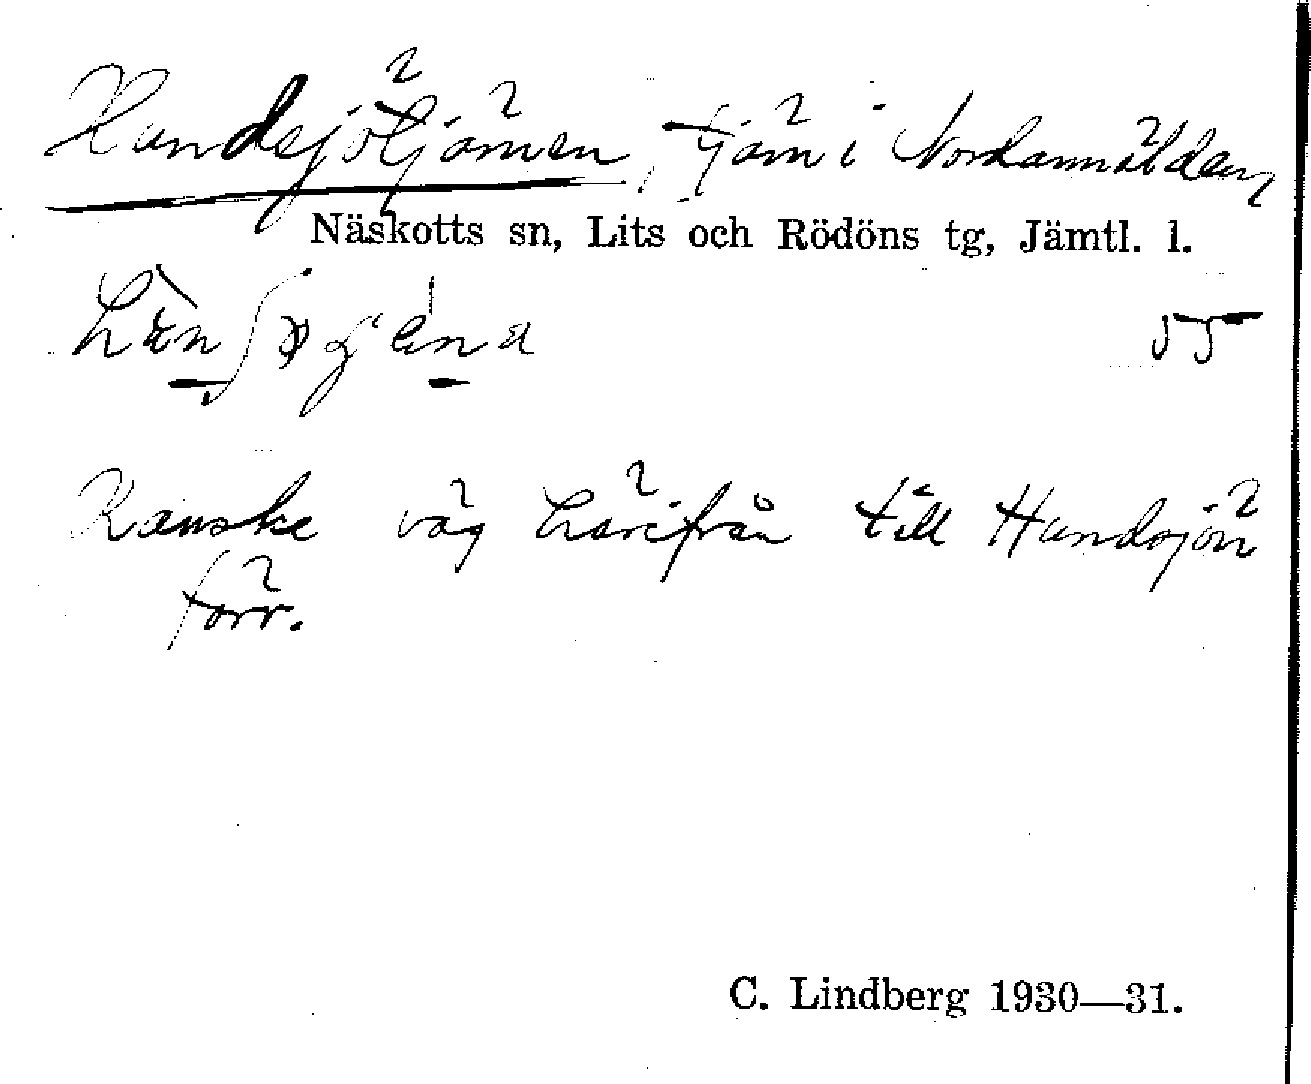 Handsjötjärnen, tjärn i Nordannälden,
Näskotts sn, Lits och Rödöns tg, Jämtl. l.
55
Kanske väg härifrån till Handsjön
förr.
C. Lindberg 1930—31.